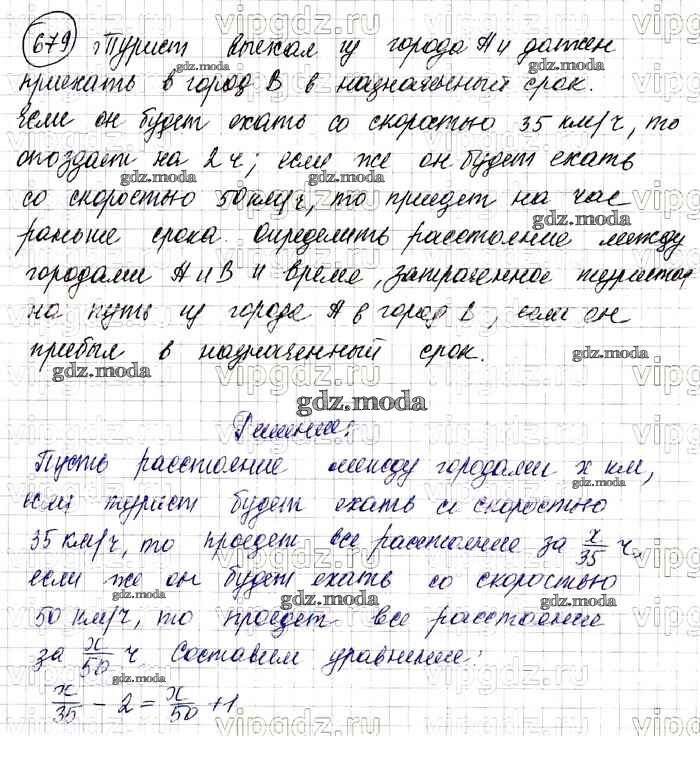 679 Турист выехал из города А и должен
приехать в город В в назначенный срок.
Если он будет ехать со скоростью 35 км/ч, то
опоздает на 2 ч; если же он будет ехать
со скоростью 50 км/ч, то приедет на час
раньше срока. Определить расстояние между
городами А и В и время, затраченное туристом
на путь из города А в город В, если он
прибыл в назначенный срок.
gdz.moda
Решение:
Пусть расстояние между городами x км,
если турист будет ехать со скоростью
35 км/ч, то проедет все расстояние за x/35 ч,
если же он будет ехать со скоростью
50 км/ч, то проедет все расстояние
за x/50 ч Составим уравнение:
x/35 - 2 = x/50 + 1